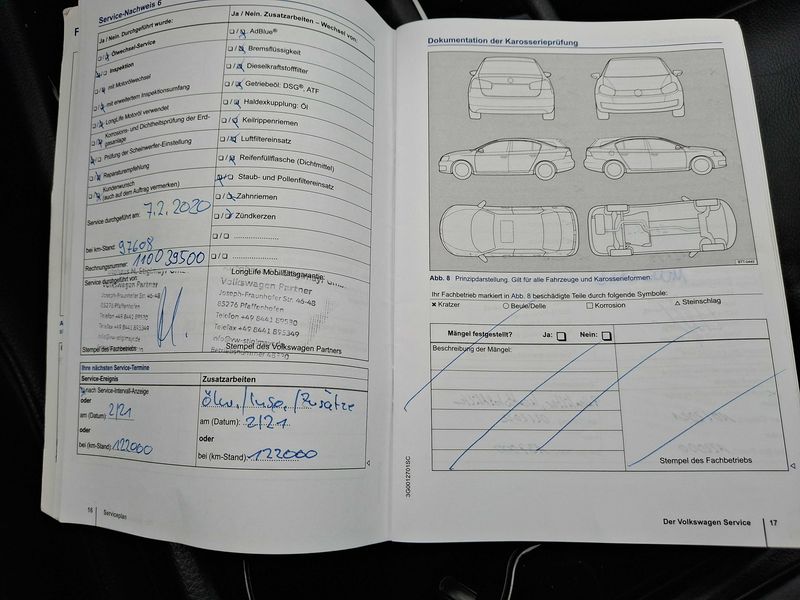 Service-Nachweis 6
Ja / Nein. Durchgeführt wurde:
Ölwechsel-Service
Inspektion
mit Motorölwechsel
mit erweitertem Inspektionsumfang
LongLife Motoröl verwendet
Korrosions- und Dichtheitsprüfung der Erd-
gasanlage
Prüfung der Scheinwerfer-Einstellung
Reparaturempfehlung
Kundenwunsch
(auch auf dem Auftrag vermerken)
Service durchgeführt am: 7.2.2020
bei km-Stand: 97608
Rechnungsnummer: 110039500
Service durchgeführt von:
Volkswagen Partner
Joseph-Fraunhofer-Str. 46-48
85276 Pfaffenhofen
Telefon +49 8441 89530
Telefax +49 8441 895349
Stempel des Fachbetriebs:
Ja / Nein. Zusatzarbeiten – Wechsel von:
AdBlue®
Bremsflüssigkeit
Dieselkraftstofffilter
Getriebeöl: DSG®, ATF
Haldexkupplung: Öl
Keilrippenriemen
Luftfiltereinsatz
Reifenfüllflasche (Dichtmittel)
Staub- und Pollenfiltereinsatz
Zahnriemen
Zündkerzen
LongLife Mobilitätsgarantie:
Volkswagen Partner
Joseph-Fraunhofer Str. 46-48
85276 Pfaffenhofen
Telefon +49 8441 89530
Telefax +49 8441 895349
Stempel des Volkswagen Partners
Ihre nächsten Service-Termine
Service-Ereignis
nach Service-Intervall-Anzeige
oder
am (Datum): 2/21
oder
bei (km-Stand): 122000
Zusatzarbeiten
Ölw./Insp./Zusätze
am (Datum): 2/21
oder
bei (km-Stand): 122000
16 Serviceplan
Dokumentation der Karosserieprüfung
BTT-0440
Abb. 8 Prinzipdarstellung. Gilt für alle Fahrzeuge und Karosserieformen.
Ihr Fachbetrieb markiert in Abb. 8 beschädigte Teile durch folgende Symbole:
Kratzer Beule/Delle Korrosion Steinschlag
Mängel festgestellt? Ja: Nein:
Beschreibung der Mängel:
Stempel des Fachbetriebs
3G0012701SC
Der Volkswagen Service 17